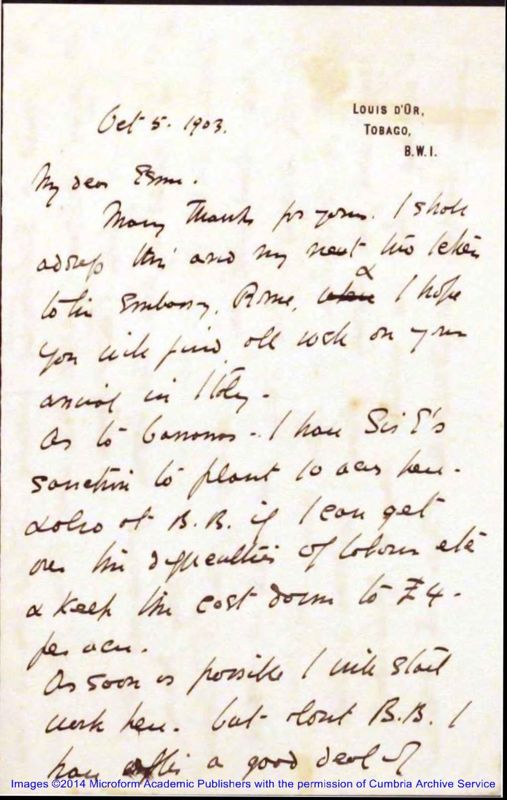 LOUIS D'OR,
TOBAGO,
B.W.I.
Oct 5. 1903.
My dear Esme.
Many thanks for yours. I shall
address this and my next two letters
to the Embassy, Rome, & I hope
you will find all well on your
arrival in Italy.
As to bananas - I have Sir E's
sanction to plant 10 acres here.
& also at B.B. if I can get
over the difficulties of labour etc
& keep the cost down to £4-
per acre.
As soon as possible I will start
work here. but about B.B. I
have a good deal of
Images ©2014 Microform Academic Publishers with the permission of Cumbria Archive Service